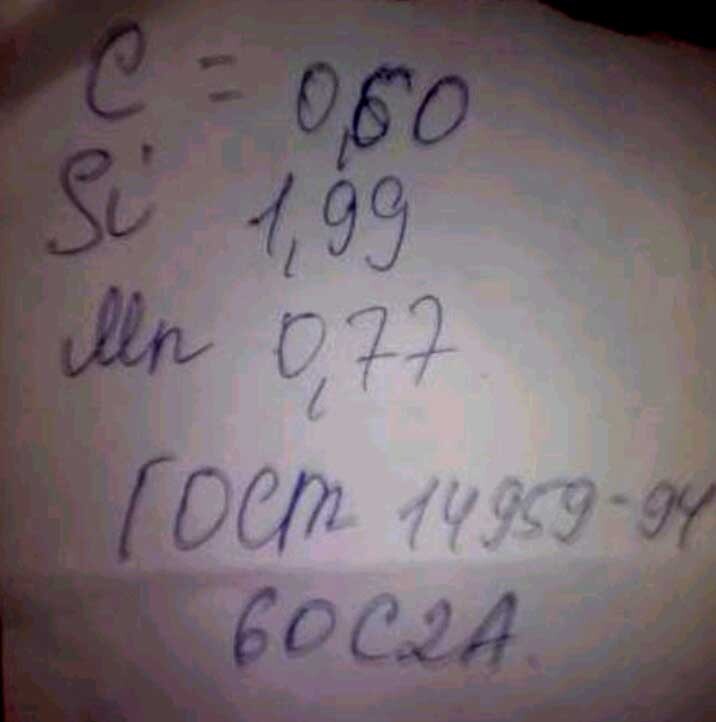 C = 0,60
Si 1,99
Mn 0,77
ГОСТ 14959-94
60С2А.